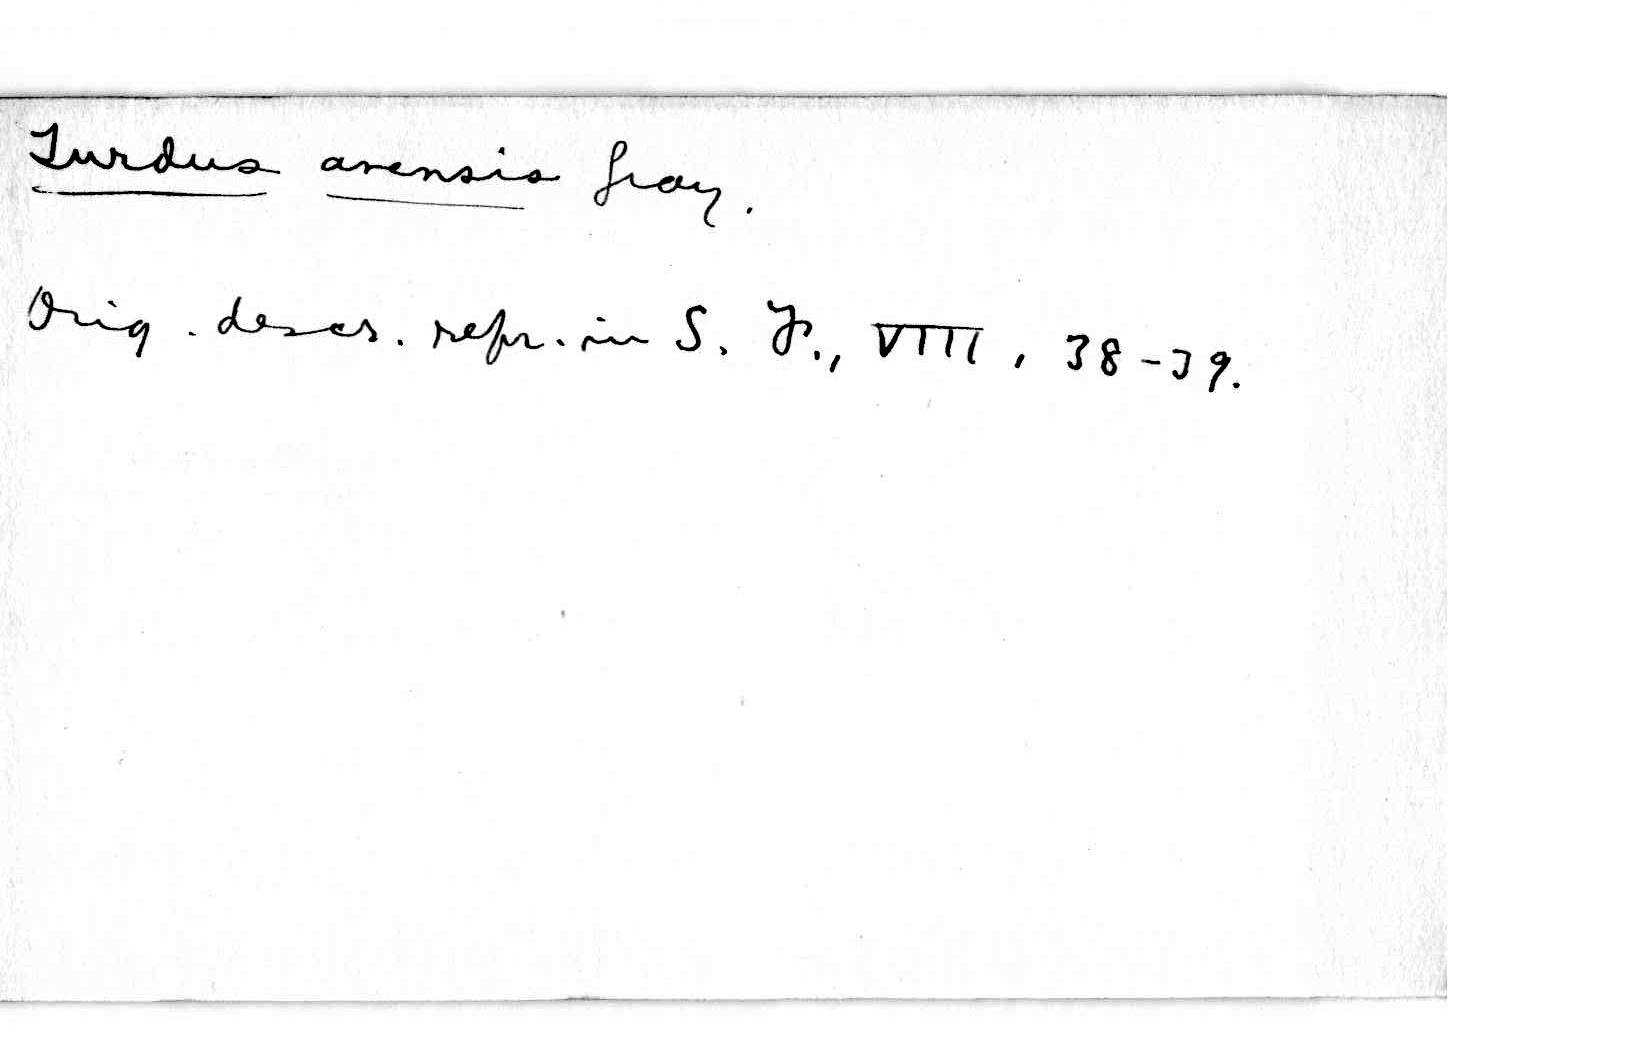 Turdus avensis Gray.
Orig. descr. repr. in S. F., VIII, 38-39.